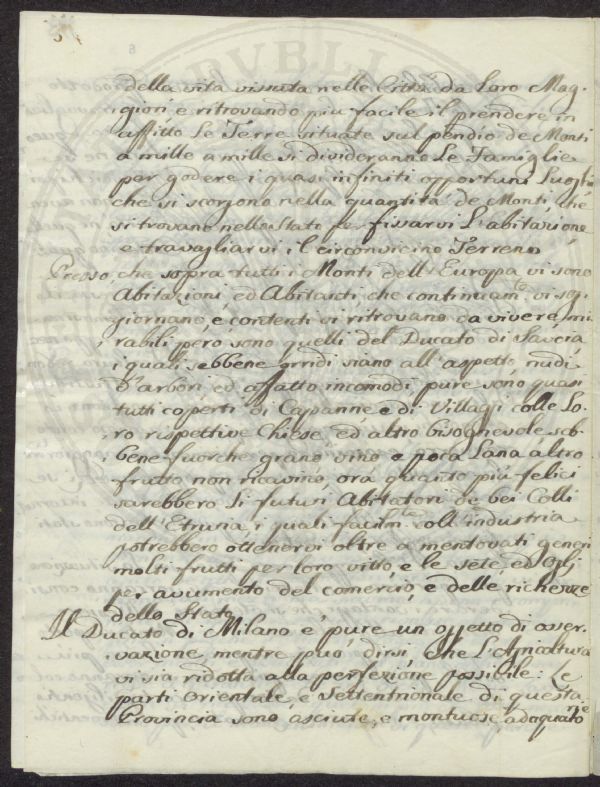 della vita vissuta nelle Città da Loro Mag-
giori e ritrovando piu facile il prendere in
affitto Le Terre situate sul pendio de Monti
a mille a mille si divideranno Le Famiglie
per godere i quasi infiniti opportuni Luoghi
che si scorgono nella quantità de Monti, che
si trovano nello Stato per fissarvi L'abitazione
e travagliarvi il circonvicino Terreno
che sopra tutti i Monti dell'Europa vi sono
Abitazioni ed Abitanti che continuam.e vi sog-
giornano, e contenti vi ritrovano da vivere, mi-
rabili pero sono quelli del Ducato di Savoia
i quali sebbene orridi siano all'aspetto, nudi
d'arbori, ed affatto incomodi, pure sono quasi
tutti coperti di Capanne e di Villagi colle Lo-
ro rispettive Chiese, ed altro bisognevole, seb-
bene fuorche grano vino e poca Lana altro
frutto non ricavino, ora quanto più felici
sarebbero Li futuri Abitatori de bei Colli
dell'Etruria i quali facilm.te coll'industria
potrebbero ottenervi oltre a mentovati generi
molti frutti per loro vitto, e le sete, ed Oglj
per aumento del comercio, e delle richezze
dello Stato
Il Ducato di Milano e' pure un oggetto di osser-
vazione mentre può dirsi, che L'Agricoltura
vi sia ridotta alla perfezione possibile: Le
parti Orientale, e Settentrionale di questa
Provincia sono asciute, e montuose, adaquato